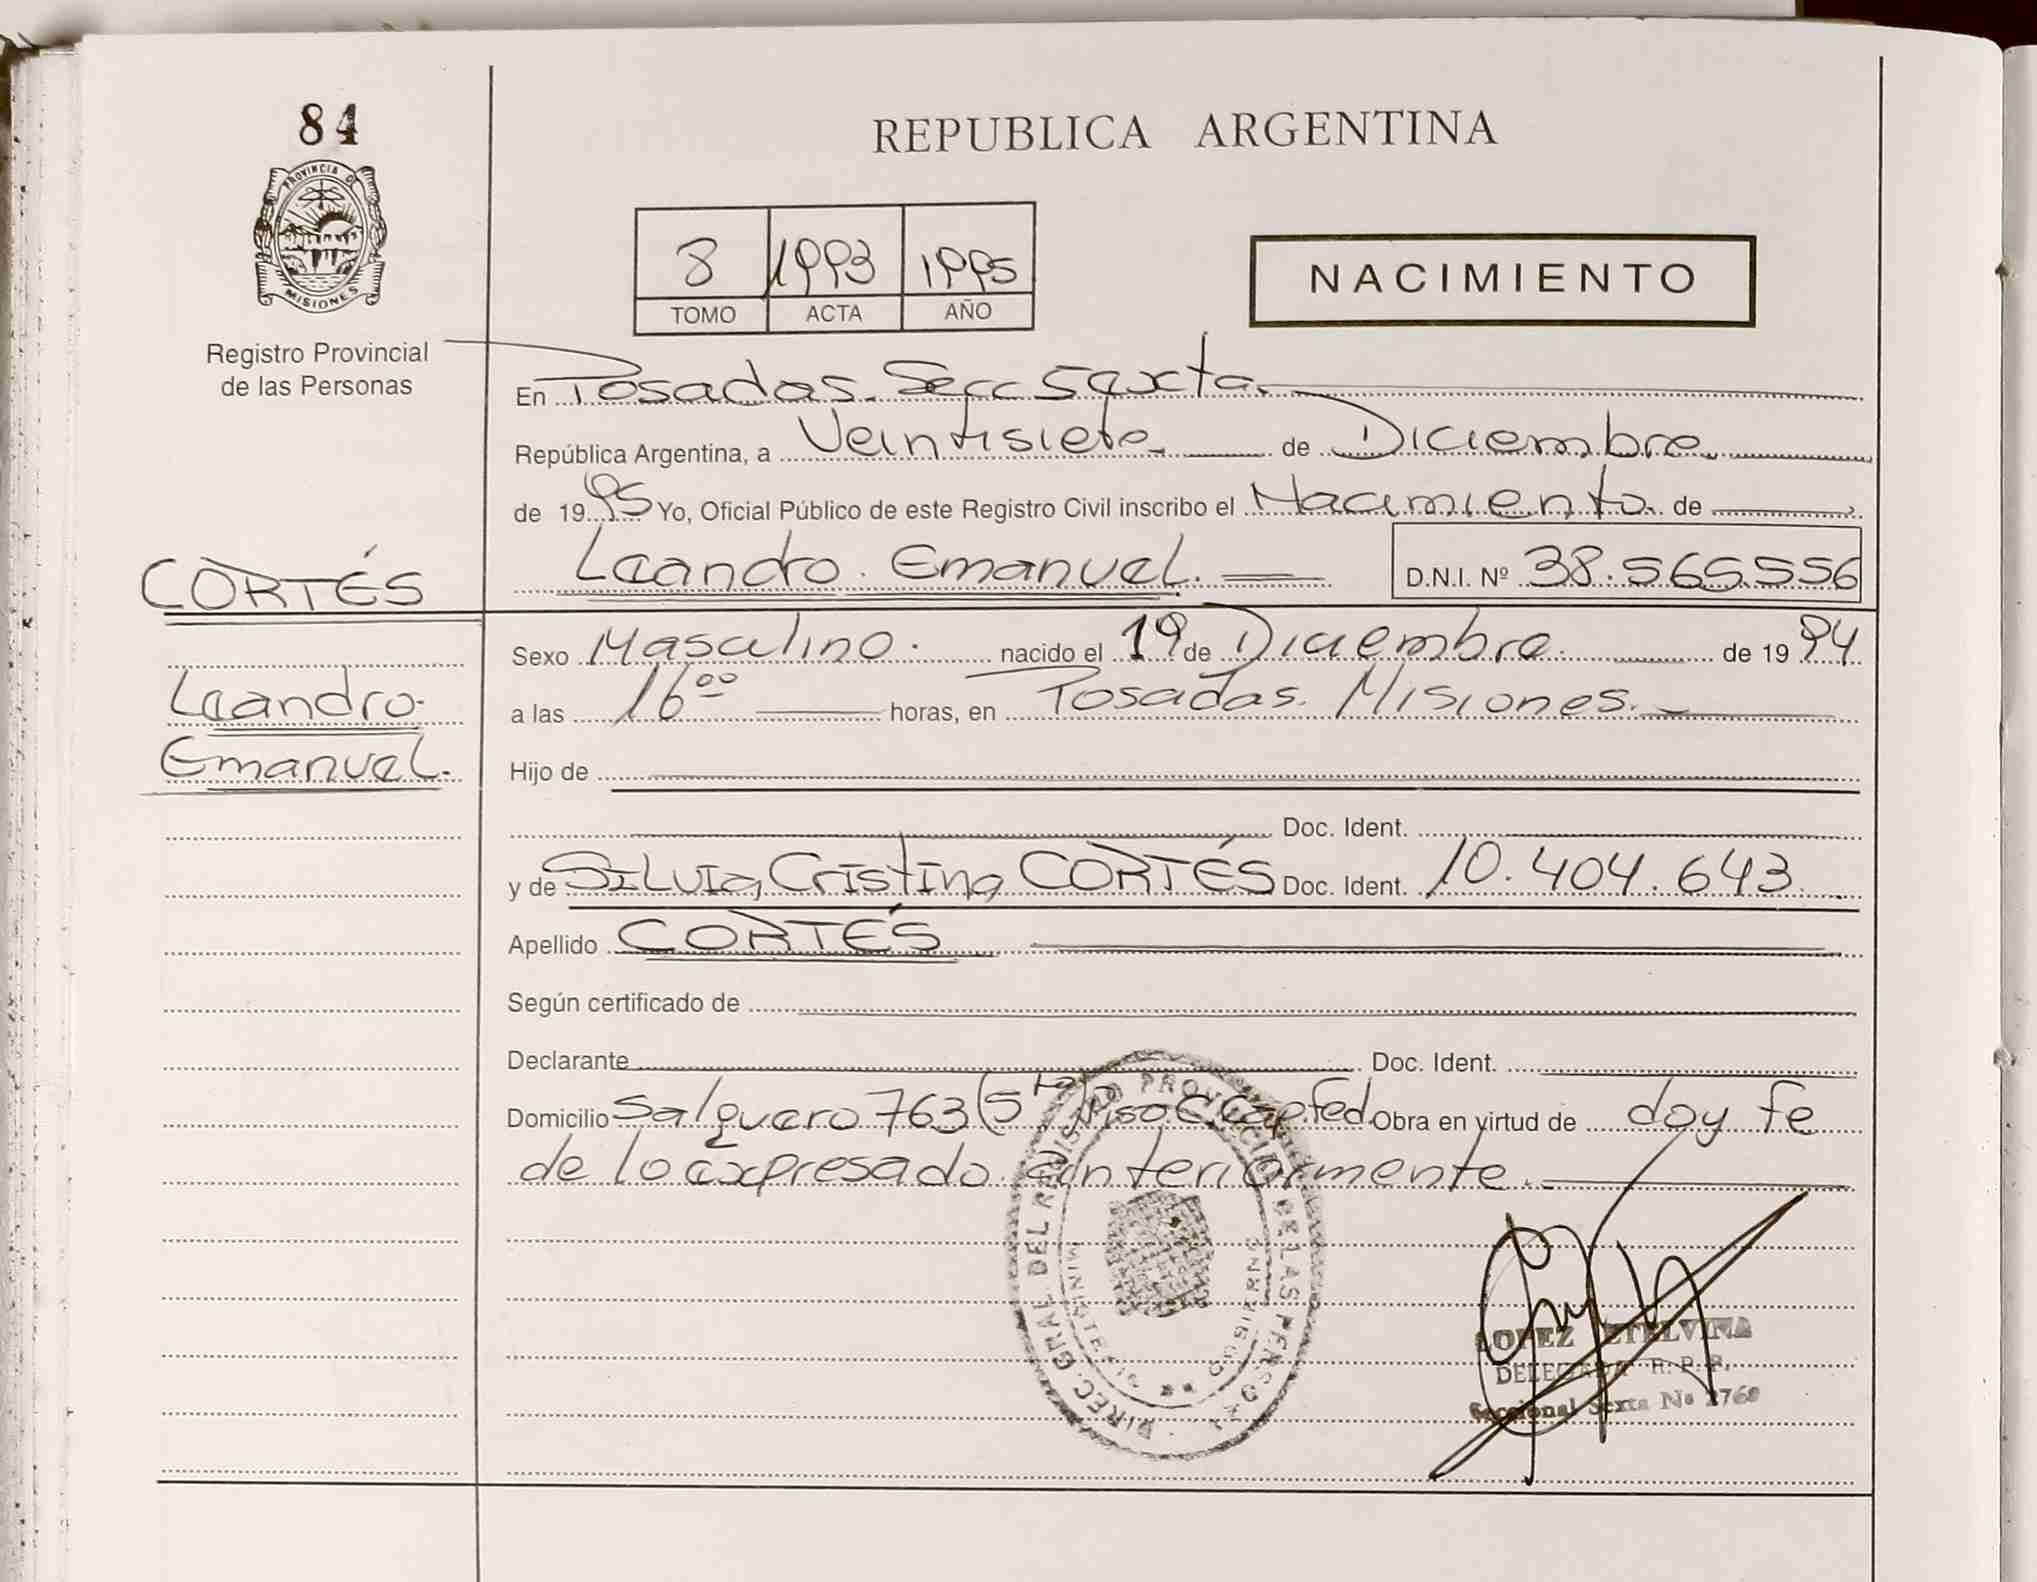 84
PROVINCIA DE
MISIONES
Registro Provincial
de las Personas
CORTÉS
Leandro.
Emanuel.
REPUBLICA ARGENTINA
8 1993 1995
TOMO ACTA AÑO
NACIMIENTO
En Posadas. Secc Sexta.
República Argentina, a Veintisiete de Diciembre
de 1995 Yo, Oficial Público de este Registro Civil inscribo el Nacimiento. de
Leandro. Emanuel. D.N.I. Nº 38.565.556
Sexo Masculino. nacido el 19 de Diciembre. de 1994
a las 16⁰⁰ horas, en Posadas. Misiones.
Hijo de
Doc. Ident.
y de Silvia, Cristina, CORTÉS Doc. Ident. 10.404.643.
Apellido CORTÉS
Según certificado de
Declarante Doc. Ident.
Domicilio Salguero 763 (5ᵗᵒ) Piso C Cap Fed. Obra en virtud de doy fe
de lo expresado anteriormente.
DIREC. GRAL. DEL REGISTRO PROVINCIAL DE LAS PERSONAS
MINISTERIO GOBIERNO
LOPEZ ETELVINA
DELEGADA R. P. P.
Seccional Sexta Nº 2760